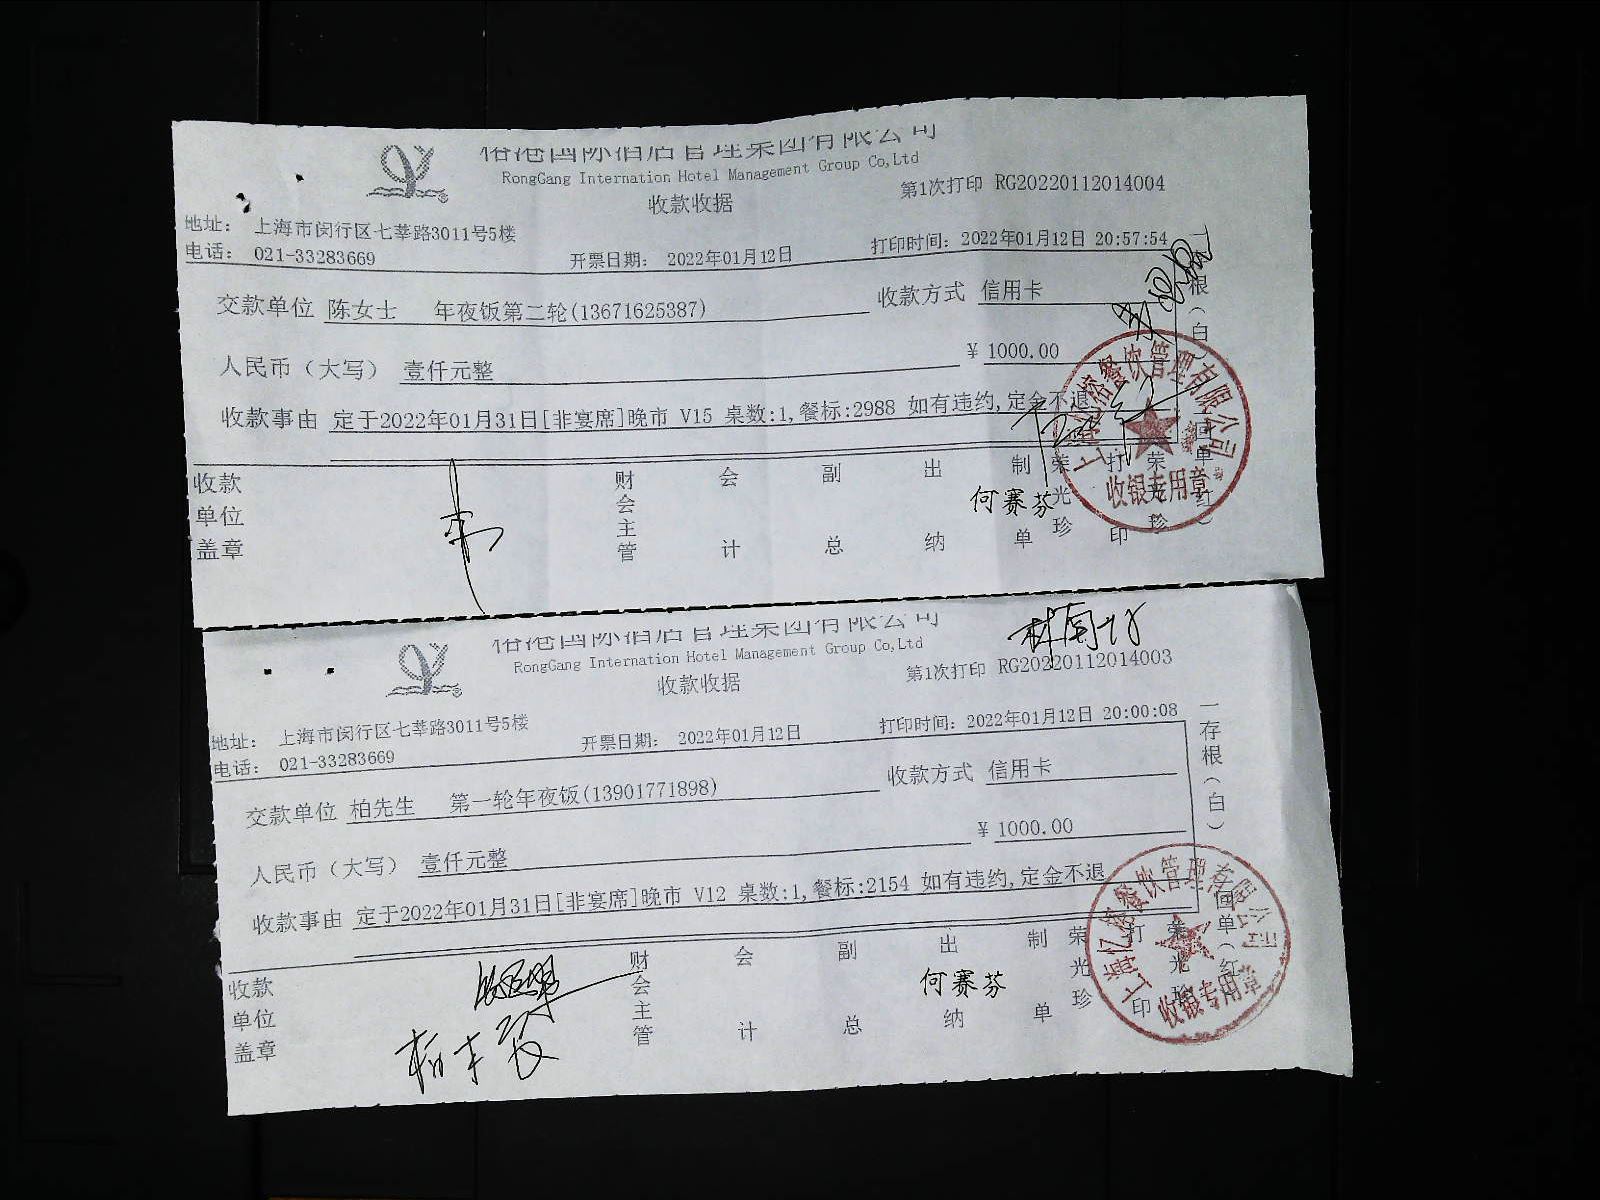 裕港国际酒店管理集团有限公司
RongGang Internation Hotel Management Group Co,Ltd
收款收据
第1次打印 RG20220112014004
地址： 上海市闵行区七莘路3011号5楼
电话： 021-33283669
开票日期： 2022年01月12日
打印时间：2022年01月12日 20:57:54
交款单位 陈女士 年夜饭第二轮(13671625387)
收款方式 信用卡
人民币（大写） 壹仟元整
¥ 1000.00
收款事由 定于2022年01月31日[非宴席]晚市 V15 桌数:1,餐标:2988 如有违约,定金不退
收款单位盖章
财会主管
会计
副总
出纳
何赛芬
制单
荣光珍
打印
荣光珍
根（白）
回单（红）
餐饮管理有限公司
收银专用章
裕港国际酒店管理集团有限公司
RongGang Internation Hotel Management Group Co,Ltd
收款收据
第1次打印 RG20220112014003
地址： 上海市闵行区七莘路3011号5楼
电话： 021-33283669
开票日期： 2022年01月12日
打印时间：2022年01月12日 20:00:08
交款单位 柏先生 第一轮年夜饭(13901771898)
收款方式 信用卡
人民币（大写） 壹仟元整
¥ 1000.00
收款事由 定于2022年01月31日[非宴席]晚市 V12 桌数:1,餐标:2154 如有违约,定金不退
收款单位盖章
财会主管
会计
副总
出纳
何赛芬
制单
荣光珍
打印
荣光珍
一存根（白）
回单（红
餐饮管理有限公司
收银专用章